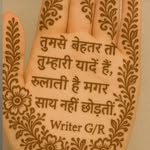 तुमसे बेहतर तो
तुम्हारी यादें हैं,
रुलाती है मगर
साथ नहीं छोड़तीं
Writer G/R